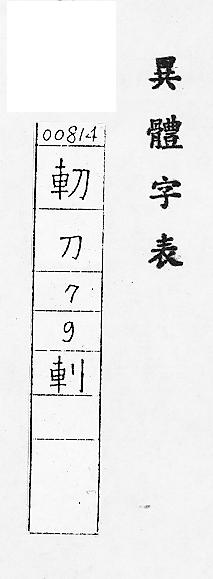 異體字表
00814
刀
7
9